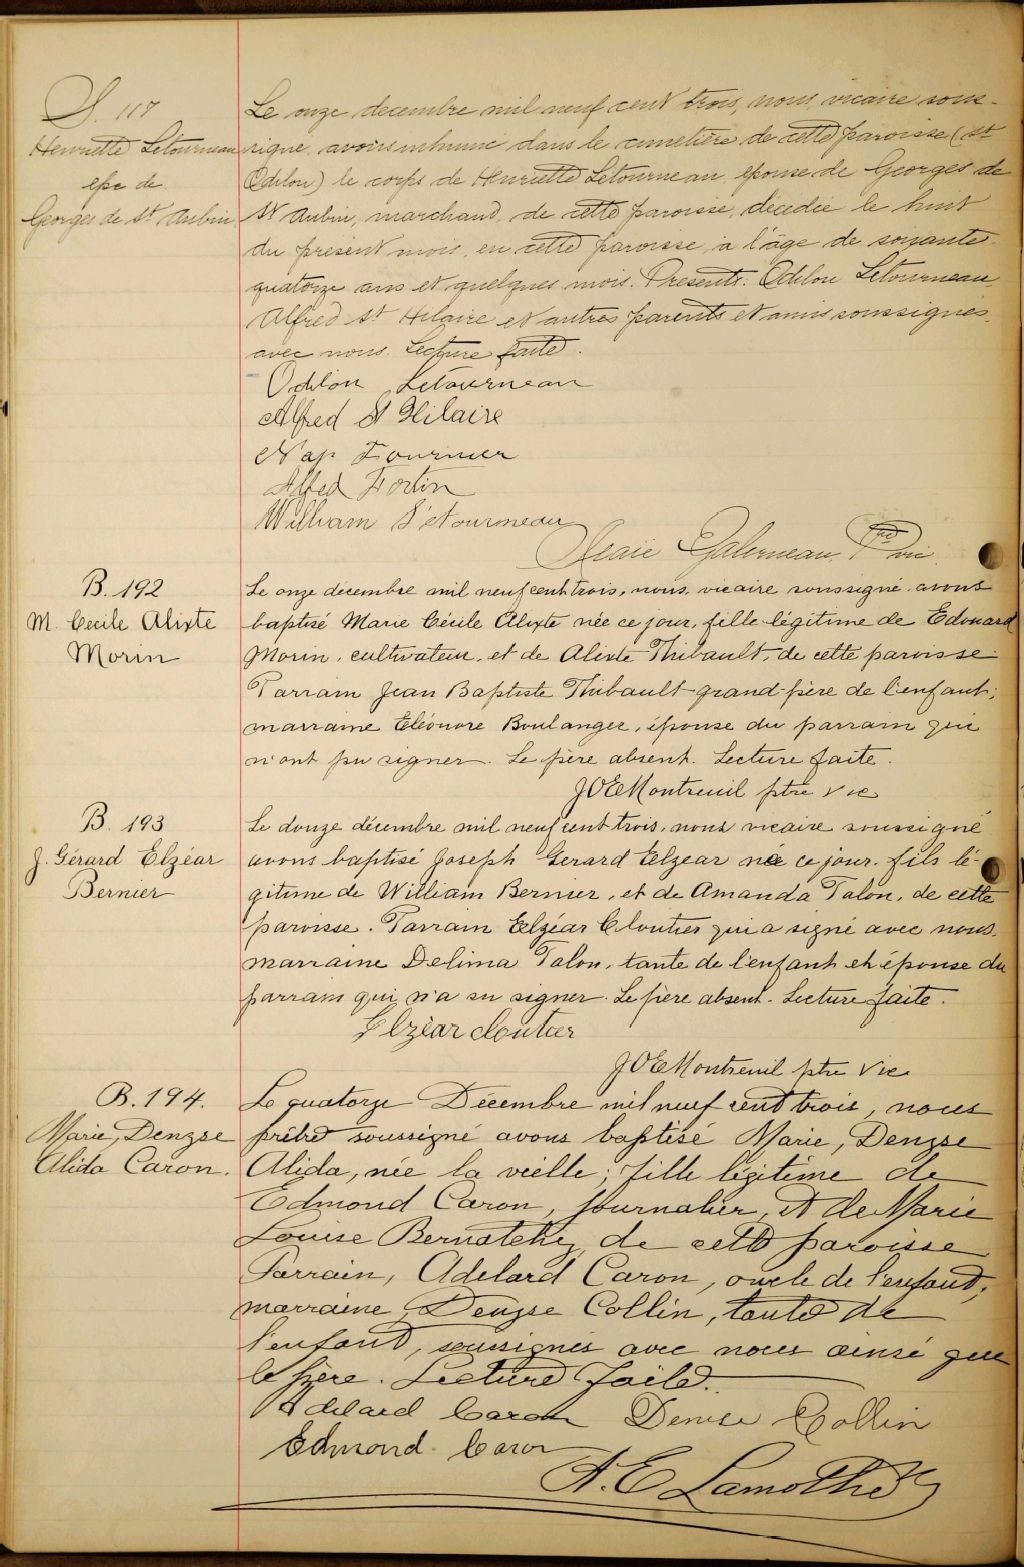 S. 117
Henriette Letourneau
epse de
Georges de St Aubin
Le onze decembre mil neuf cent trois, nous, vicaire sous-
signe, avons inhumé dans le cimetière de cette paroisse (St
Odilon) le corps de Henriette Letourneau, epouse de Georges de
St Aubin, marchand, de cette paroisse, décédée le huit
du present mois, en cette paroisse, à l'âge de soixante
quatorze ans et quelques mois. Presents: Odilon Letourneau
Alfred St Hilaire et autres parents et amis soussignés
avec nous. Lecture faite.
Odilon Letourneau
Alfred St Hilaire
Nap Fournier
Alfred Fortin
William Letourneau
Galerneau, Ptre vic
B. 192
M. Cécile Alixte
Morin
Le onze décembre mil neuf cent trois, nous, vicaire soussigné avons
baptisé Marie Cécile Alixte née ce jour, fille légitime de Edouard
Morin, cultivateur, et de Alixte Thibault, de cette paroisse
Parrain Jean Baptiste Thibault grand-père de l'enfant;
marraine Eléonore Boulanger, épouse du parrain qui
n'ont pu signer. Le père absent. Lecture faite.
JOE Montreuil ptre vic
B. 193
J. Gérard Elzéar
Bernier
Le douze décembre mil neuf cent trois, nous vicaire soussigné
avons baptisé Joseph Gerard Elzear née ce jour, fils lé-
gitime de William Bernier, et de Amanda Talon, de cette
paroisse. Parrain Elzéar Cloutier qui a signé avec nous.
marraine Delima Talon, tante de l'enfant et épouse du
parrain qui n'a su signer. Le père absent. Lecture faite.
Elzèar cloutier
JOE Montreuil ptre Vic
B. 194.
Marie, Denyse
Alida Caron.
Le quatorze Décembre mil neuf cent trois, nous
prêtre soussigné avons baptisé Marie, Denyse
Alida, née la veille; fille légitime de
Edmond Caron, journalier, et de Marie
Louise Bernatchez, de cette paroisse
Parrain, Adelard Caron, oncle de l'enfant;
marraine, Denyse Collin, tante de
l'enfant, soussignés avec nous ainsi que
le père. Lecture faite.
Adelard Caron Denise Collin
Edmond Caron
A. E Lamothe